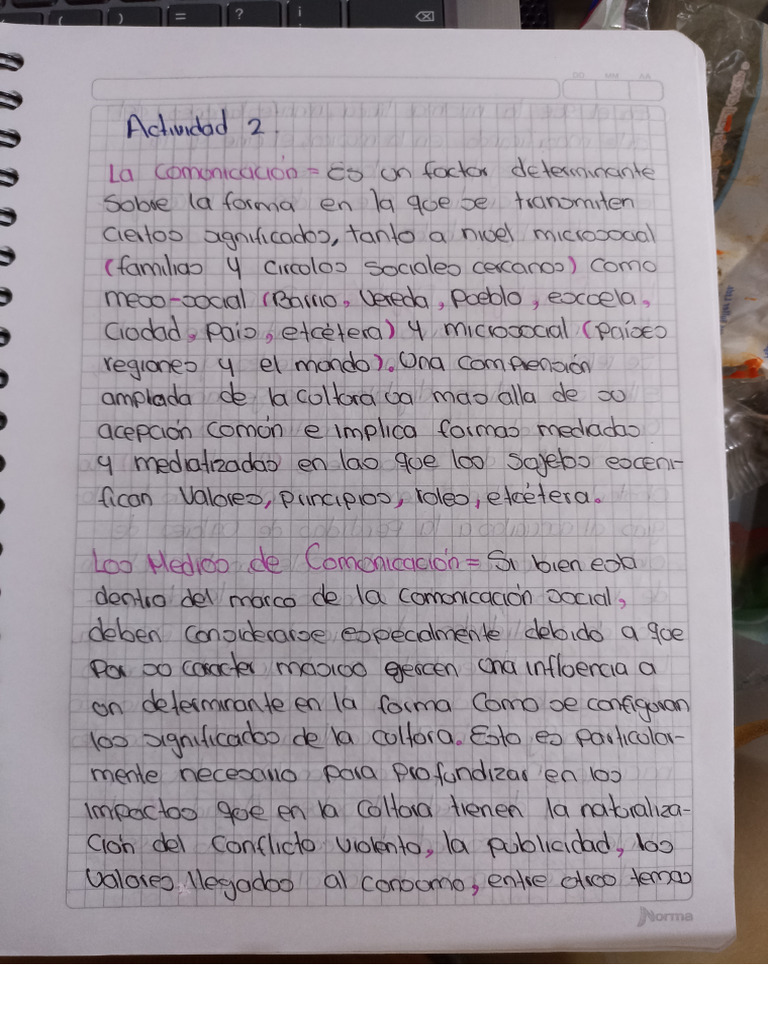 Actividad 2.
La Comunicación = Es un factor determinante
sobre la forma en la que se transmiten
ciertos significados, tanto a nivel microsocial
(familias y circulos sociales cercanos) como
meso-social (Barrio, Vereda, pueblo, escuela,
Ciudad, pais, etcétera) y microsocial (países
regiones y el mundo). Una comprensión
ampliada de la cultura va mas alla de su
acepción común e implica formas mediadas
y mediatizadas en las que los sujetos esceni-
fican Valores, principios, roles, etcétera.
Los Medios de Comunicación = Si bien esta
dentro del marco de la comunicación social,
deben considerarse especialmente debido a que
Por su caracter masivo ejercen una influencia a
un determinante en la forma Como se configuran
los significados de la cultura. Esto es particular-
mente necesario para profundizar en los
impactos que en la cultura tienen la naturaliza-
ción del conflicto violento, la publicidad, los
Valores llegados al consumo, entre otros temas
Norma